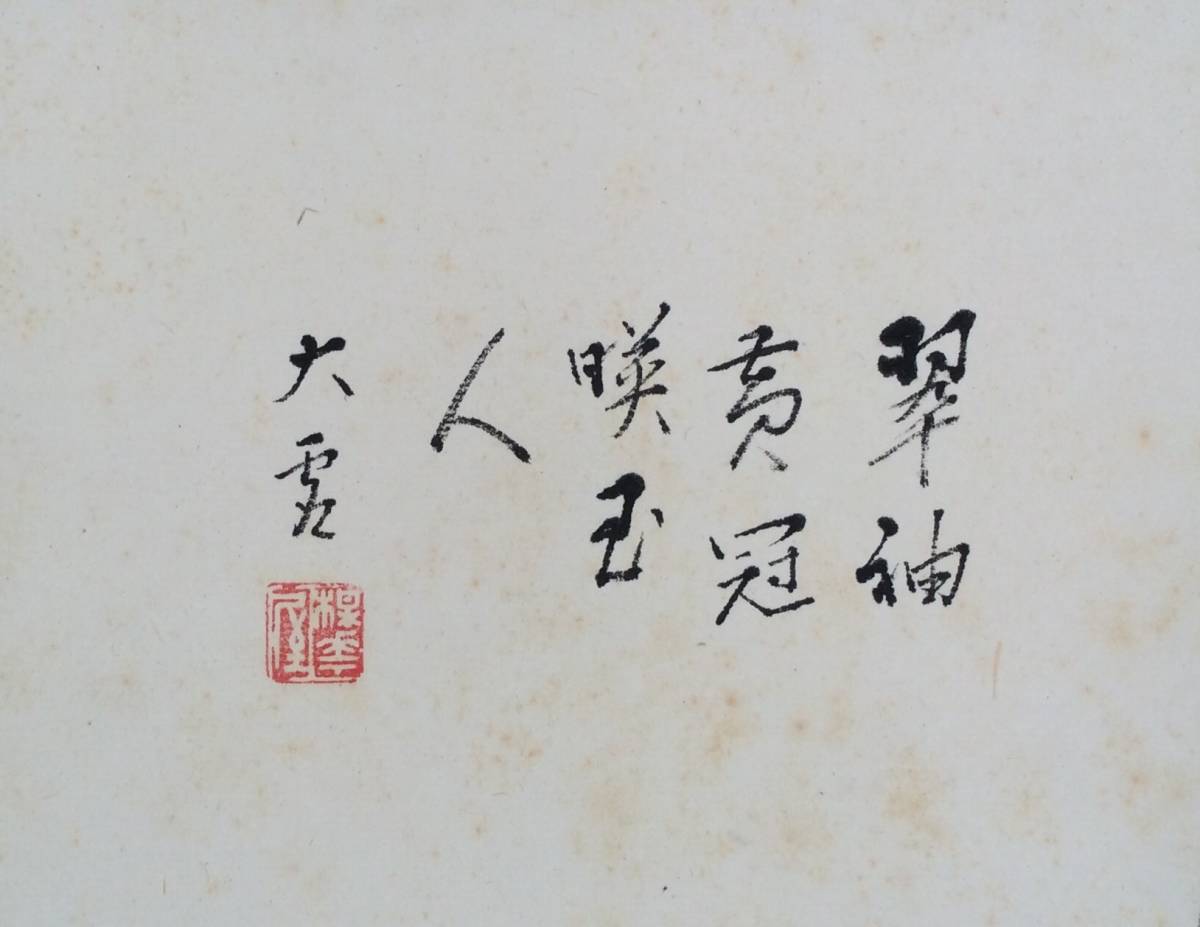 翠袖
黄冠
暎玉
人
大雲